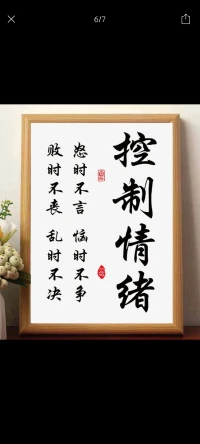 6/7
控制情绪
怒时不言 恼时不争
败时不丧 乱时不决